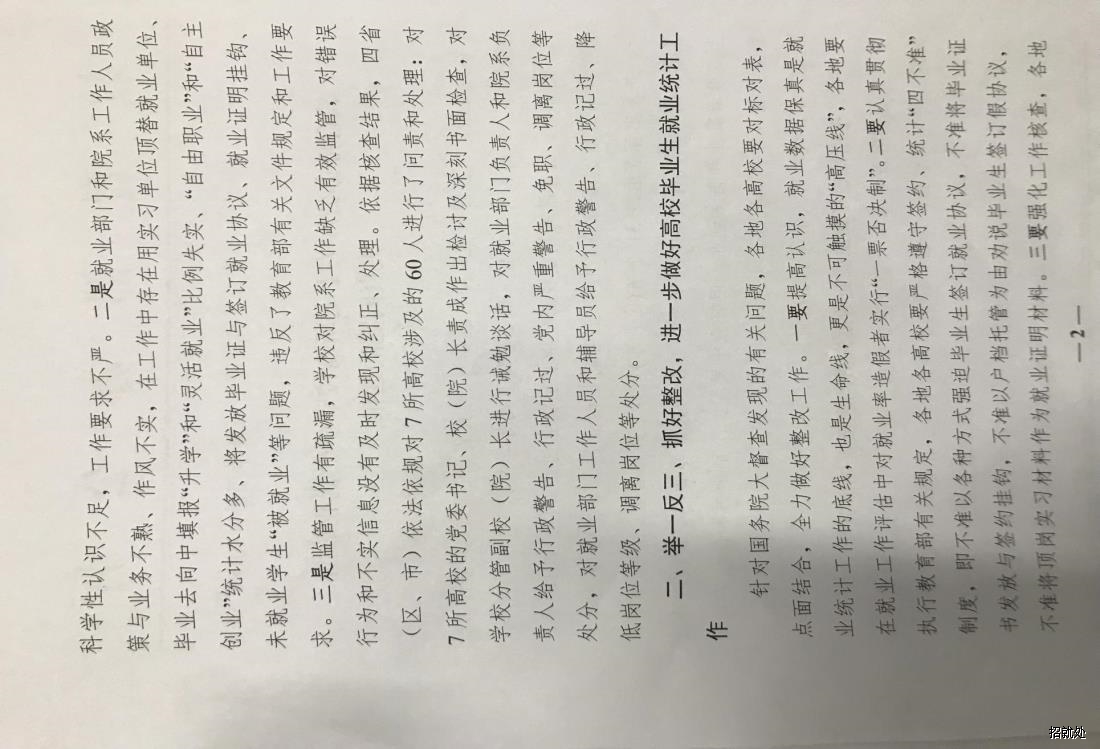 科学性认识不足，工作要求不严。二是就业部门和院系工作人员政
策与业务不熟、作风不实，在工作中存在用实习单位顶替就业单位、
毕业去向中填报“升学”和“灵活就业”比例失实、“自由职业”和“自主
创业”统计水分多、将发放毕业证与签订就业协议、就业证明挂钩、
未就业学生“被就业”等问题，违反了教育部有关文件规定和工作要
求。三是监管工作有疏漏，学校对院系工作缺乏有效监管，对错误
行为和不实信息没有及时发现和纠正、处理。依据核查结果，四省
（区、市）依法依规对7所高校涉及的60人进行了问责和处理：对
7所高校的党委书记、校（院）长责成作出检讨及深刻书面检查，对
学校分管副校（院）长进行诫勉谈话，对就业部门负责人和院系负
责人给予行政警告、行政记过、党内严重警告、免职、调离岗位等
处分，对就业部门工作人员和辅导员给予行政警告、行政记过、降
低岗位等级、调离岗位等处分。
二、举一反三、抓好整改，进一步做好高校毕业生就业统计工
作
针对国务院大督查发现的有关问题，各地各高校要对标对表，
点面结合，全力做好整改工作。一要提高认识，就业数据保真是就
业统计工作的底线，也是生命线，更是不可触摸的“高压线”，各地要
在就业工作评估中对就业率造假者实行“一票否决制”。二要认真贯彻
执行教育部有关规定，各地各高校要严格遵守签约、统计“四不准”
制度，即不准以各种方式强迫毕业生签订就业协议，不准将毕业证
书发放与签约挂钩，不准以户档托管为由劝说毕业生签订假协议，
不准将顶岗实习材料作为就业证明材料。三要强化工作核查，各地
—2—
招就处